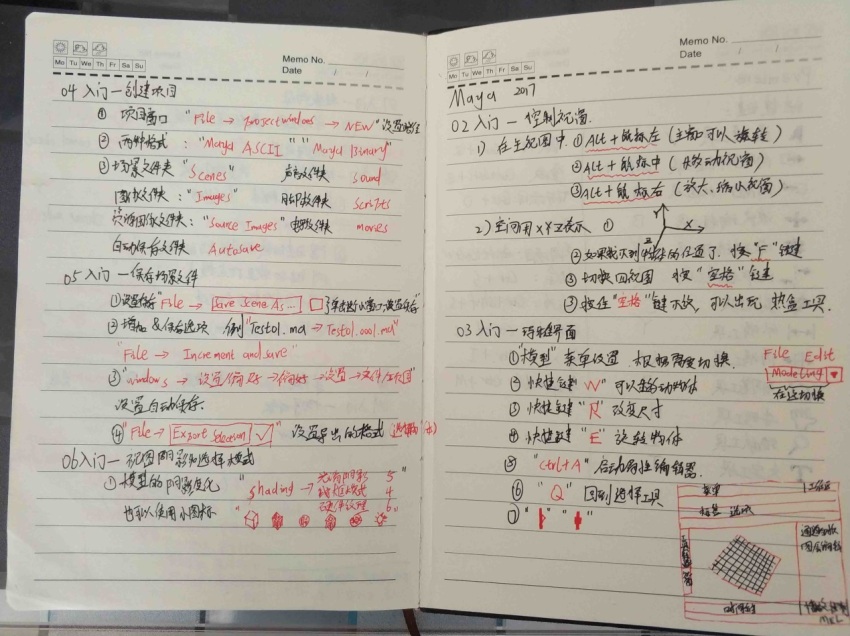 Mo Tu We Th Fr Sa Su
Memo No.
Date / /
04 入门—创建项目
① 项目窗口 "File → projectwindows → NEW" 设置路径
② 两种格式: "Maya ASCII" "Maya Binary"
③ 场景文件夹 "Scenes" 声音文件夹 sound
图像文件夹: "Images" 脚本文件夹 Scripts
资源图像文件夹: "Source Images" 电影文件夹 movies
自动保存文件夹 Autosave
05 入门—保存场景文件
① 设置保存 "File → Save Scene As...
② 增加&保存选项 例 "Test01.ma → Test01.001.ma"
"File → Increment and save"
③ "windows → 设置/偏好 → 偏好 → 设置 → 文件/
设置自动保存.
④ "File → Export Selection ✓" 设置导出的格式
06 入门—视图阴影和选择模式
① 模型的阴影变化 "Shading → 光滑阴影 5"
线框模式 4
硬件纹理 6"
也可以使用小图标
Mo Tu We Th Fr Sa Su
Memo No.
Date / /
Maya 2017
02 入门—控制视窗.
1) 在主视图中. ① ALt + 鼠标左 (主轴可以旋转)
② ALt + 鼠标中 (移动视窗)
③ ALt + 鼠标右 (放大、缩小视窗)
2) 空间用 XYZ表示 ①
Y
X
Z
② 如果找不到物体的位置了. 按 "F" 键
③ 切换四视图 按 "空格" 键
③ 按住 "空格" 键不放, 可以出现 热盒工具.
03 入门—
① "模型" 菜单设置. 切换. File Edit
Modeling ▼
在这切换
② 快捷键 "W" 可以移动物体
③ 快捷键 "R" 改变尺寸
④ 快捷键 "E" 旋转物体
⑤ "ctrl+A" 启动属性编辑器.
⑥ "Q" 回到选择工具
⑦
菜单
工具
MEL